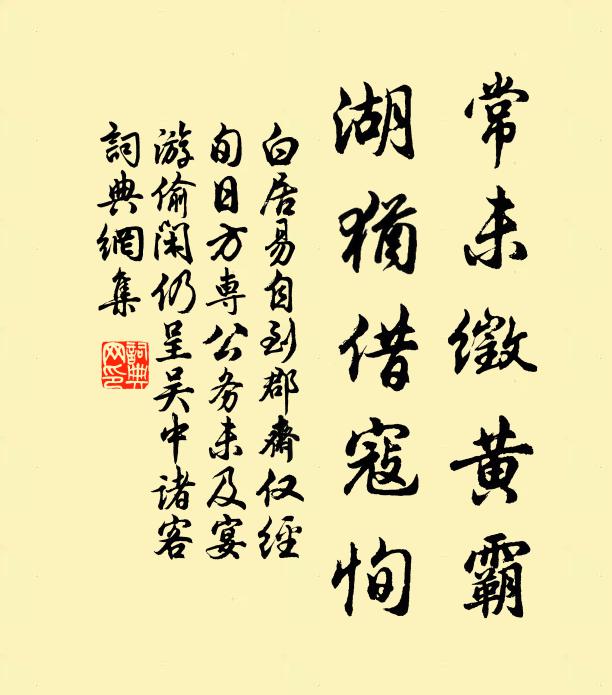 常未徵黄霸
湖猶借寇恂
白居易自到郡齋仅經
旬日方専公务未及宴
游偷闲仍呈吴中诸客
詞典網集
詞典
网印